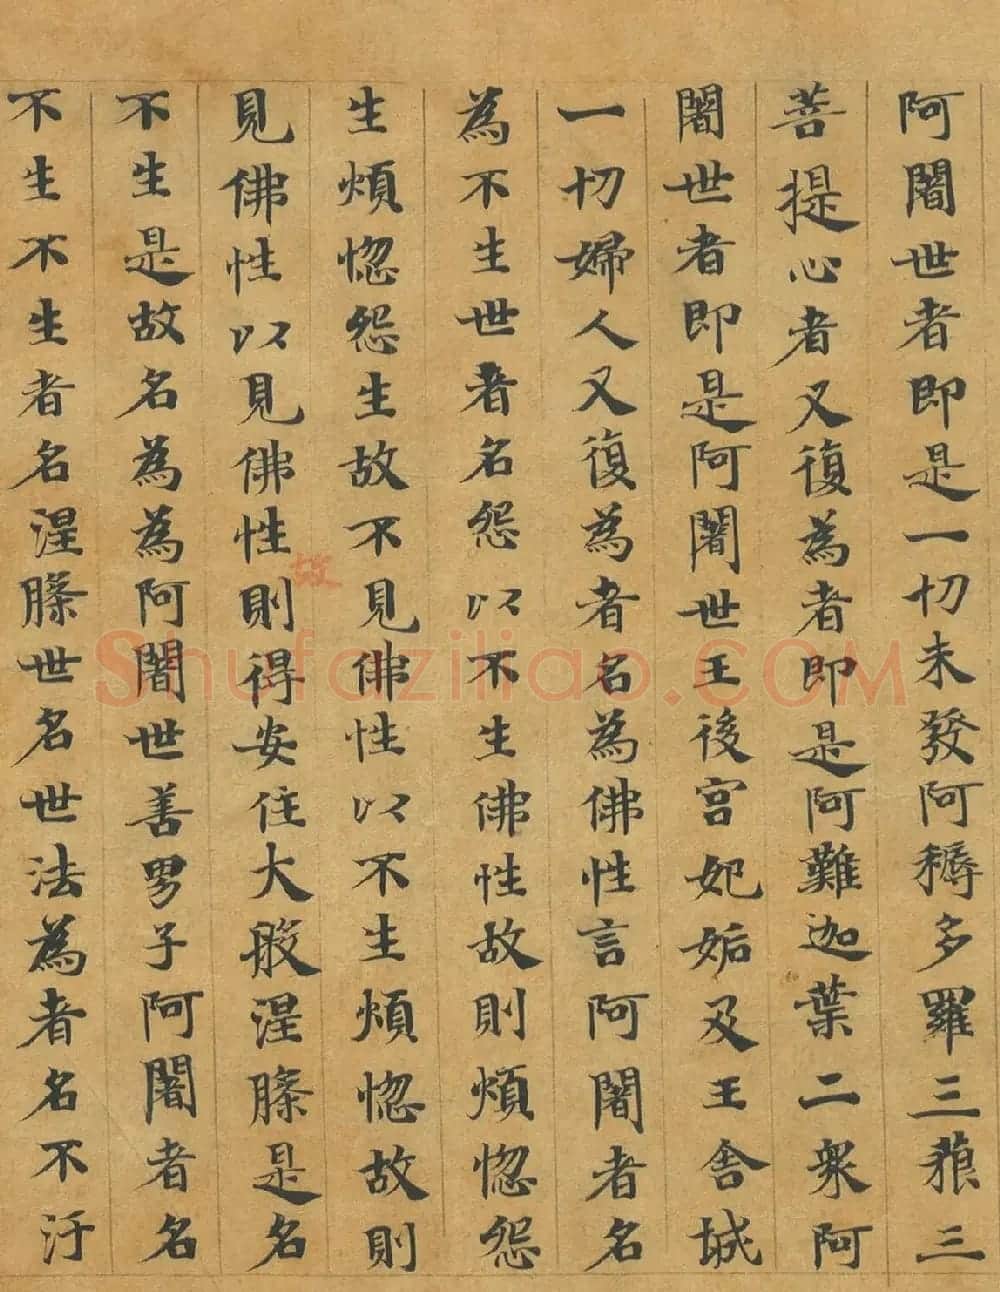 阿闍世者即是一切未發阿耨多羅三藐三
菩提心者又復為者即是阿難迦葉二衆阿
闍世者即是阿闍世王後宮妃姤及王舍城
一切婦人又復為者名為佛性言阿闍者名
為不生世者名怨以不生佛性故則煩惱怨
生煩惱怨生故不見佛性以不生煩惱故則
故
見佛性以見佛性則得安住大般涅槃是名
不生是故名為為阿闍世善男子阿闍者名
不生不生者名涅槃世名世法為者名不汙
Shufaziliao.COM